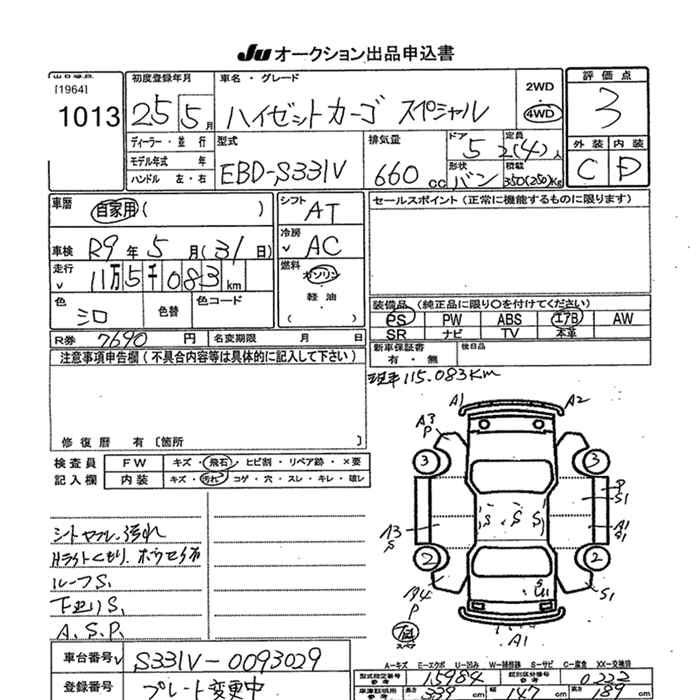 JU オークション出品申込書
[1964]
1013
初度登録年月
25 5月
車名・グレード
ハイゼットカーゴ スペシャル
2WD
4WD
評価点
3
外装 内装
C D
ディーラー・並行
モデル年式 年
ハンドル 左・右
型式
EBD-S331V
排気量
660 cc
ドア 5
形状 バン
定員 2(4)人
積載 350(250)kg
車歴
自家用( )
車検 R9年5月(31日)
走行 11万5千083km
色 シロ
色替
色コード
シフト AT
冷房 AC
燃料
ガソリン
軽油
( )
セールスポイント(正常に機能するものに限ります)
装備品(純正品に限り〇を付けてください)
PS PW ABS エアB AW
SR ナビ TV 本革
新車保証書
有・無
後日品
R券 7690円
名変期限 月 日
注意事項申告欄(不具合内容等は具体的に記入して下さい)
115.083Km
修復歴 有〔箇所 〕
検査員
記入欄
FW キズ・飛石・ヒビ割・リペア跡・×要
内装 キズ・汚れ・コゲ・穴・スレ・キレ・破レ
汚れ
ルーフS.
A.S.P.
A1 A2
A3
P
3 3
P
S1
A3
S
S S S
A1
S1
2 2
A4
P
S
S1
A1
車台番号 S331V-0093029
登録番号 プレート変更中
A-キズ E-エクボ U-凹み W-補修跡 S-サビ C-腐食 XX-交換済
型式指定番号
参考
15984
類別区分番号
参考
0223
車庫証明用
参考
長さ 339cm
幅 147cm
高さ 189cm